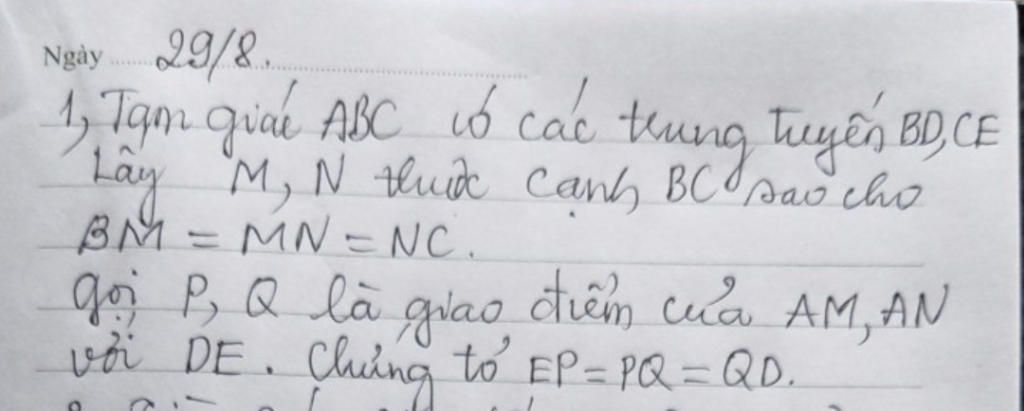 Ngày 29/8.
1, Tam giác ABC có các trung tuyến BD, CE
Lấy M, N thuộc cạnh BC sao cho
BM = MN = NC.
Gọi P, Q là giao điểm của AM, AN
với DE. Chứng tỏ EP = PQ = QD.